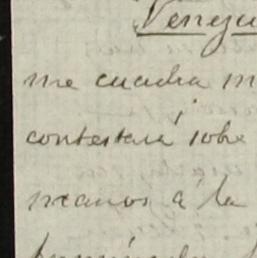 Venezu
me cuadra m
contestará sobe
manos á la